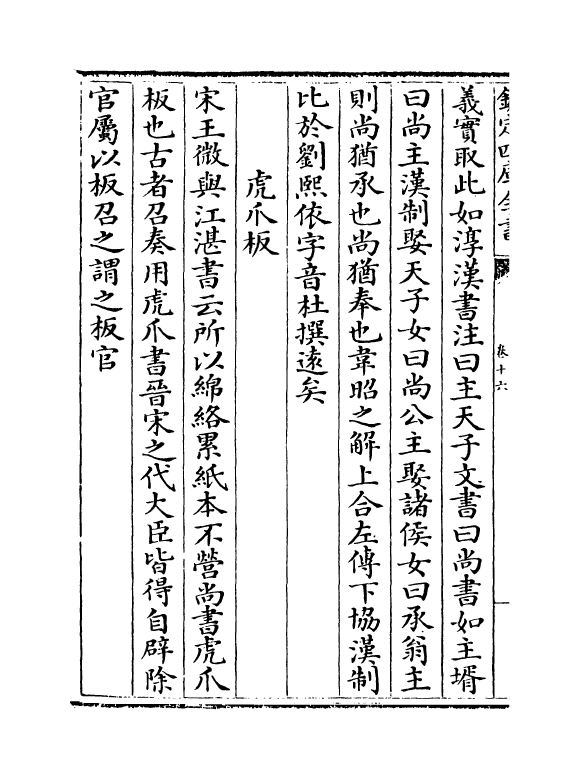 欽定四庫全書
卷十六
義實取此如淳漢書注曰主天子文書曰尚書如主壻
曰尚主漢制娶天子女曰尚公主娶諸侯女曰承翁主
則尚猶承也尚猶奉也韋昭之解上合左傳下協漢制
比於劉熙依字音杜撰遠矣
虎爪板
宋王微與江湛書云所以綿絡累紙本不營尚書虎爪
板也古者召奏用虎爪書晉宋之代大臣皆得自辟除
官屬以板召之謂之板官